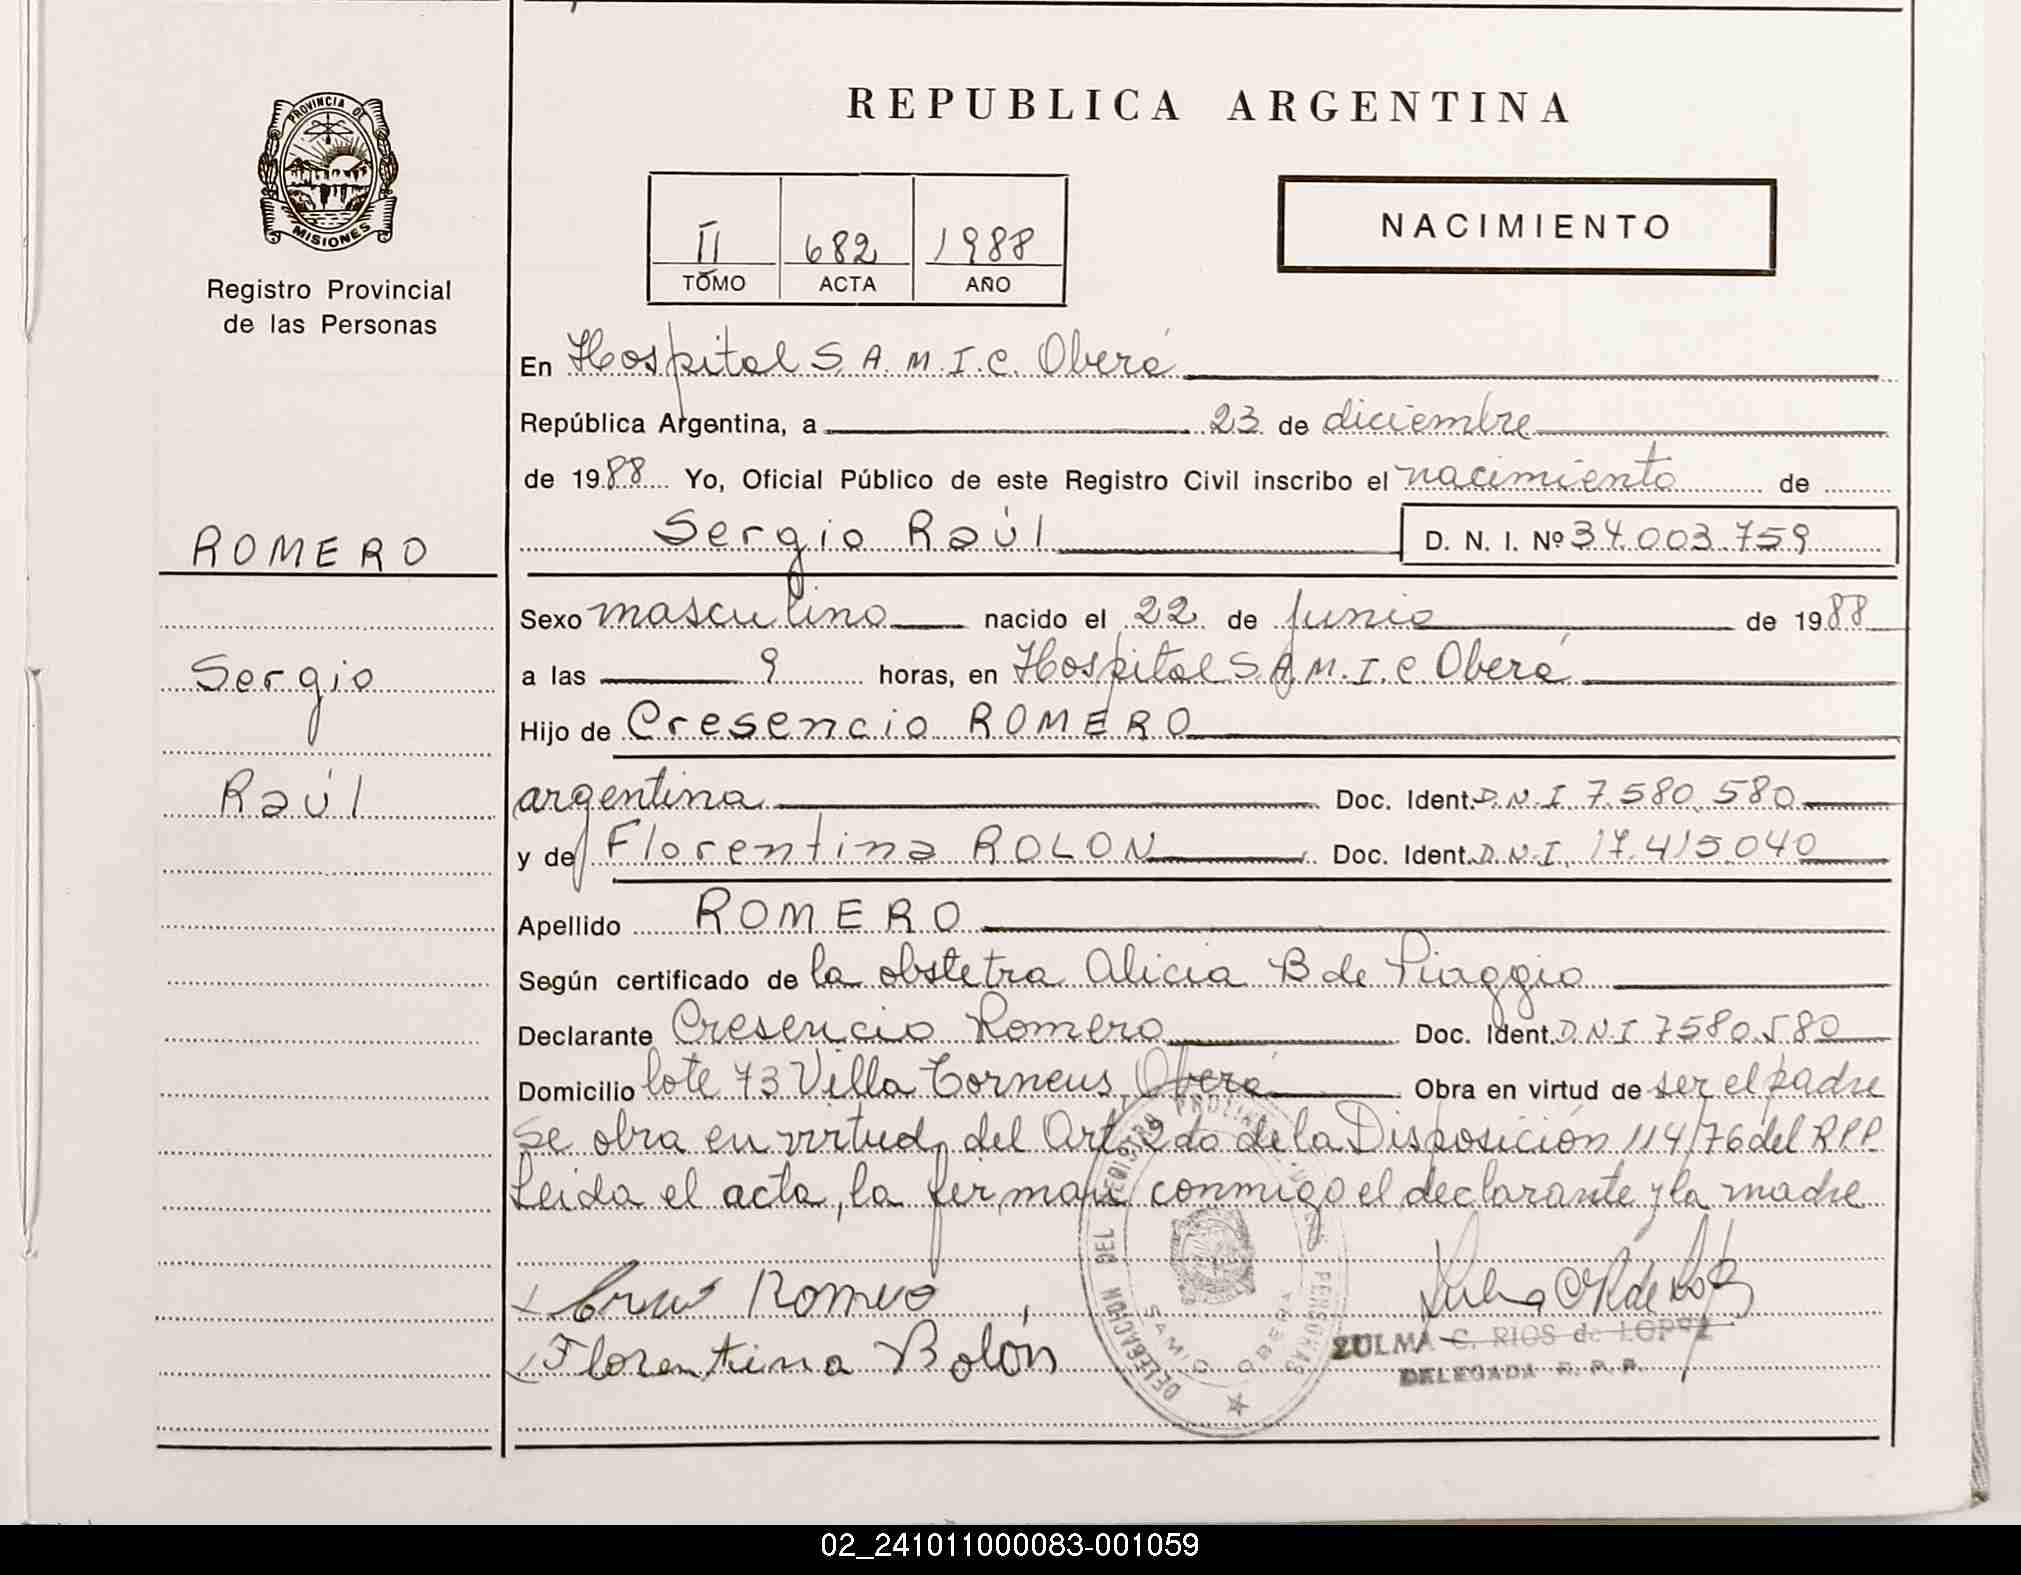 PROVINCIA DE
MISIONES
Registro Provincial
de las Personas
ROMERO
Sergio
Raúl
REPUBLICA ARGENTINA
II 682 1988
TOMO ACTA AÑO
NACIMIENTO
En Hospital S.A.M.I.C. Oberá
República Argentina, a 23 de diciembre
de 1988 Yo, Oficial Público de este Registro Civil inscribo el nacimiento de
Sergio Raúl D. N. I. Nº 34.003.759
Sexo masculino nacido el 22 de junio de 1988
a las 9 horas, en Hospital S.A.M.I.C Oberá
Hijo de Cresencio ROMERO
argentina Doc. Ident. D.N.I 7.580.580
y de Florentina ROLON Doc. Ident. D.N.I. 17.415.040
Apellido ROMERO
Según certificado de la obstetra Alicia B de Piaggio
Declarante Cresencio Romero Doc. Ident. D.N.I 7580.580
Domicilio lote 73 Villa Torneus, Oberá Obra en virtud de ser el padre
Se obra en virtud del Art. 2do de la Disposición 114/76 del R.P.P.
Leida el acta, la firman conmigo el declarante y la madre
Romero
Florentina Rolón
DELEGACION DEL REGISTRO PROVINCIAL DE LAS PERSONAS
SAMIC OBERA
ZULMA C. RIOS de LOPEZ
DELEGADA R. P. P.
02_241011000083-001059